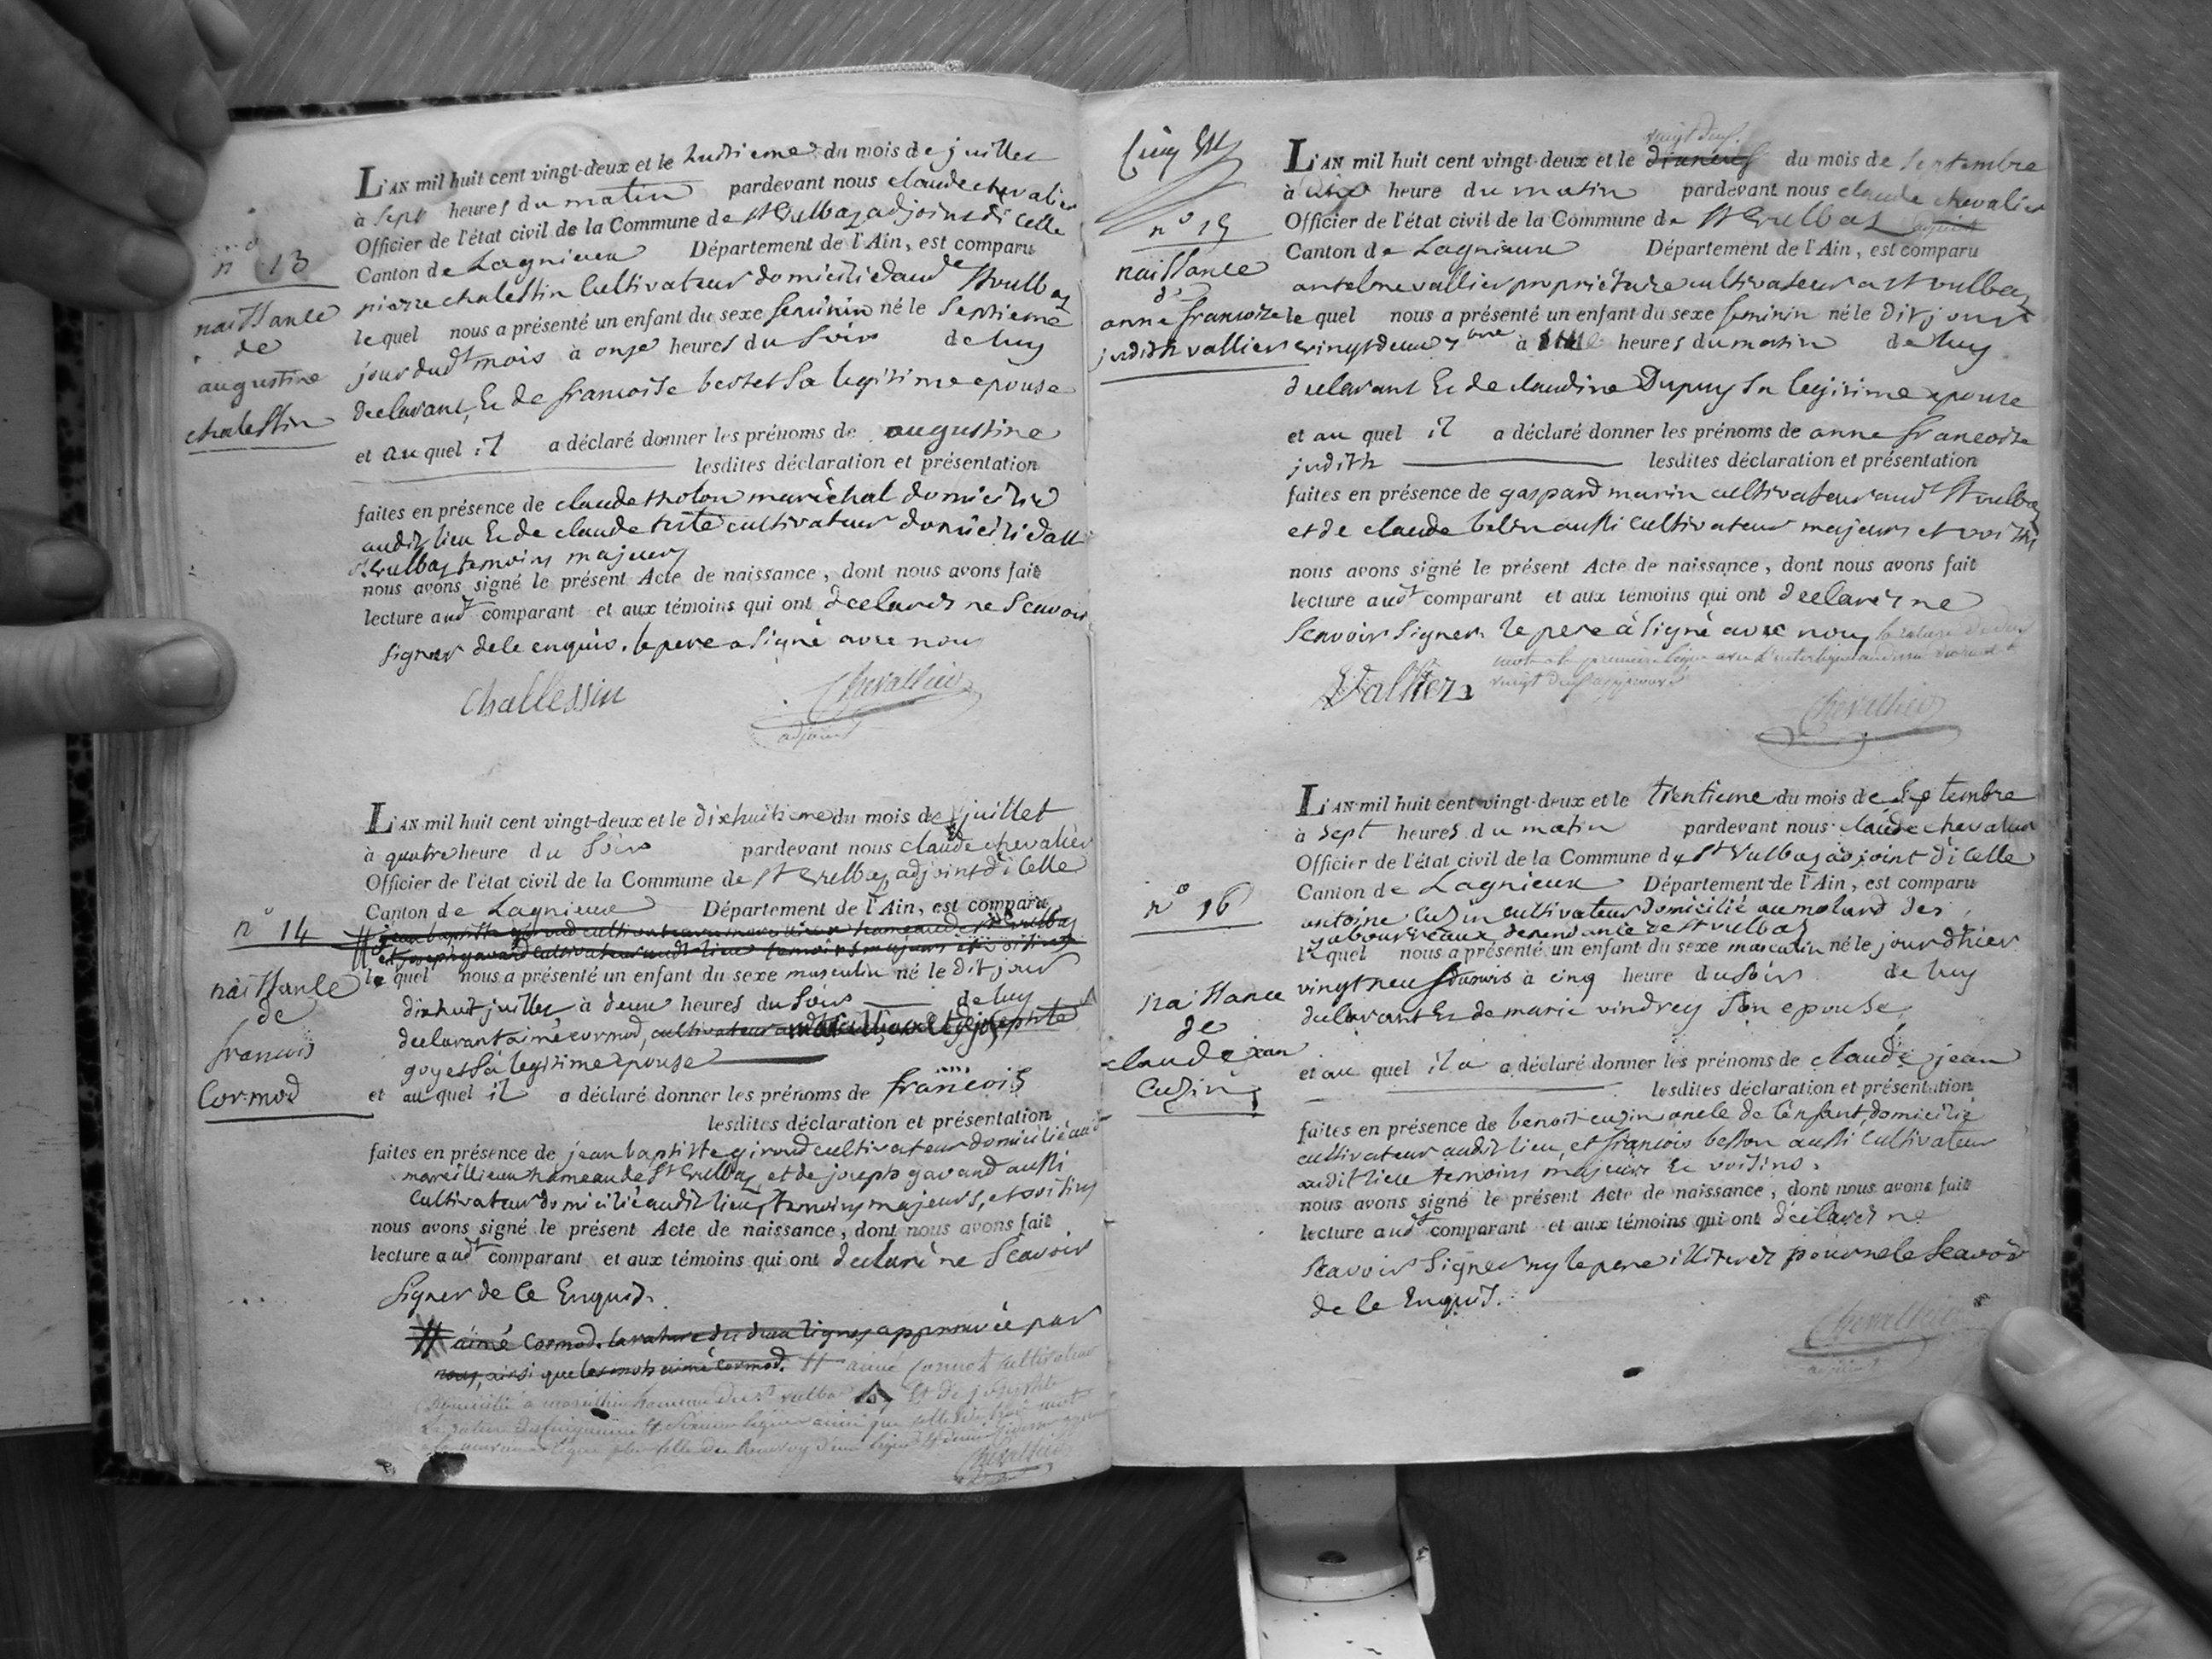 n° 13
naissance
de
augustine
chalessin
L'AN mil huit cent vingt-deux et le huitieme du mois de juillet
à sept heures du matin pardevant nous claude chevalier
Officier de l'état civil de la Commune de st Vulbas adjoint di celle
Canton de Lagnieux Département de l'Ain, est comparu
pierre chalessin Cultivateur domicilié aud st vulbas
le quel nous a présenté un enfant du sexe feminin né le septieme
jour dudt mois à onze heures du soir de luy
declarant, Et de francoise bertet sa legitime epouse
et au quel il a déclaré donner les prénoms de augustine
lesdites déclaration et présentation
faites en présence de claude tholon maréchal domicilié
audit lieu Et de claude teste cultivateur domicilié audt
st vulbas temoins majeurs
nous avons signé le présent Acte de naissance, dont nous avons fait
lecture audt comparant et aux témoins qui ont declaréz ne scavoir
signer de le enquis. le pere a signé avec nous
Challessin Chevallier
adjoint
n° 14
naissance
de
francois
Cormod
L'AN mil huit cent vingt-deux et le dixhuitieme du mois de juillet
à quatre heure du soir pardevant nous claude chevalier
Officier de l'état civil de la Commune de st Vulbas, adjoint di celle
Canton de Lagnieux Département de l'Ain, est comparu
jean baptiste giroud cultivateur hameau de st Vulbas
et joseph gavand cultivateur audit lieu temoins majeurs et voisins
le quel nous a présenté un enfant du sexe masculin né le dit jour
dixhuit juillet à deux heures du soir de luy
declarant aimé cormod, cultivateur
goyet sa legitime epouse
et au quel il a déclaré donner les prénoms de francois
lesdites déclaration et présentation
faites en présence de jean baptiste giroud cultivateur domicilié aud
marcillieux hameau de st Vulbas, et de joseph gavand aussi
Cultivateur domicilié audit lieu, temoins majeurs, et voisins
nous avons signé le présent Acte de naissance, dont nous avons fait
lecture audt comparant et aux témoins qui ont declaré ne scavoir
signer de le Enquis.
aimé Cormod. la rature des deux lignes approuvée par
nous, ainsi que les mots aimé cormod. aimé Cormod cultivateur
Chevallier
n° 15
naissance
d'
anne francoise
judith vallier
vingt deux
L'AN mil huit cent vingt-deux et le dixneuf du mois de septembre
à heure du matin pardevant nous claude chevalier
Officier de l'état civil de la Commune de st Vulbas adjoint
Canton de Lagnieux Département de l'Ain, est comparu
antelme vallier proprietaire cultivateur a st vulbas
le quel nous a présenté un enfant du sexe feminin né le dit jour
vingt deux 7bre à heures du matin de luy
declarant Et de claudine Dupuy sa legitime epouse
et au quel il a déclaré donner les prénoms de anne francoise
judith lesdites déclaration et présentation
faites en présence de gaspard marin cultivateur audt st vulbas
et de claude belin aussi cultivateur majeurs et voisins
nous avons signé le présent Acte de naissance, dont nous avons fait
lecture audt comparant et aux témoins qui ont declaréz ne
scavoir signer. le pere à signé avec nous
Vallier
Chevallier
n° 16
naissance
de
claude jean
Cuzin
L'AN mil huit cent vingt-deux et le trentieme du mois de septembre
à sept heures du matin pardevant nous claude chevalier
Officier de l'état civil de la Commune de st Vulbas adjoint di celle
Canton de Lagnieux Département de l'Ain, est comparu
antoine Cuzin cultivateur domicilié au molard des
dependance de st vulbas
le quel nous a présenté un enfant du sexe masculin né le jour dhier
vingt neuf du mois à cinq heure du soir de luy
declarant Et de marie vindrey son epouse,
et au quel il a a déclaré donner les prénoms de claude jean
lesdites déclaration et présentation
faites en présence de benoit cuzin oncle de l'enfant, domicilié
cultivateur audit lieu, et francois besson aussi cultivateur
audit lieu temoins majeurs Et voisins.
nous avons signé le présent Acte de naissance, dont nous avons fait
lecture audt comparant et aux témoins qui ont declaréz ne
scavoir signer ny le pere illiterez pour ne le scavoir
de le Enquis.
Chevallier
adjoint